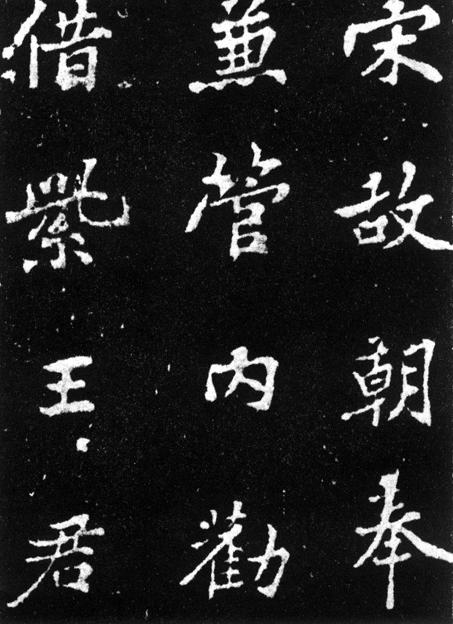 宋故朝奉
兼管内勸
借紫王君